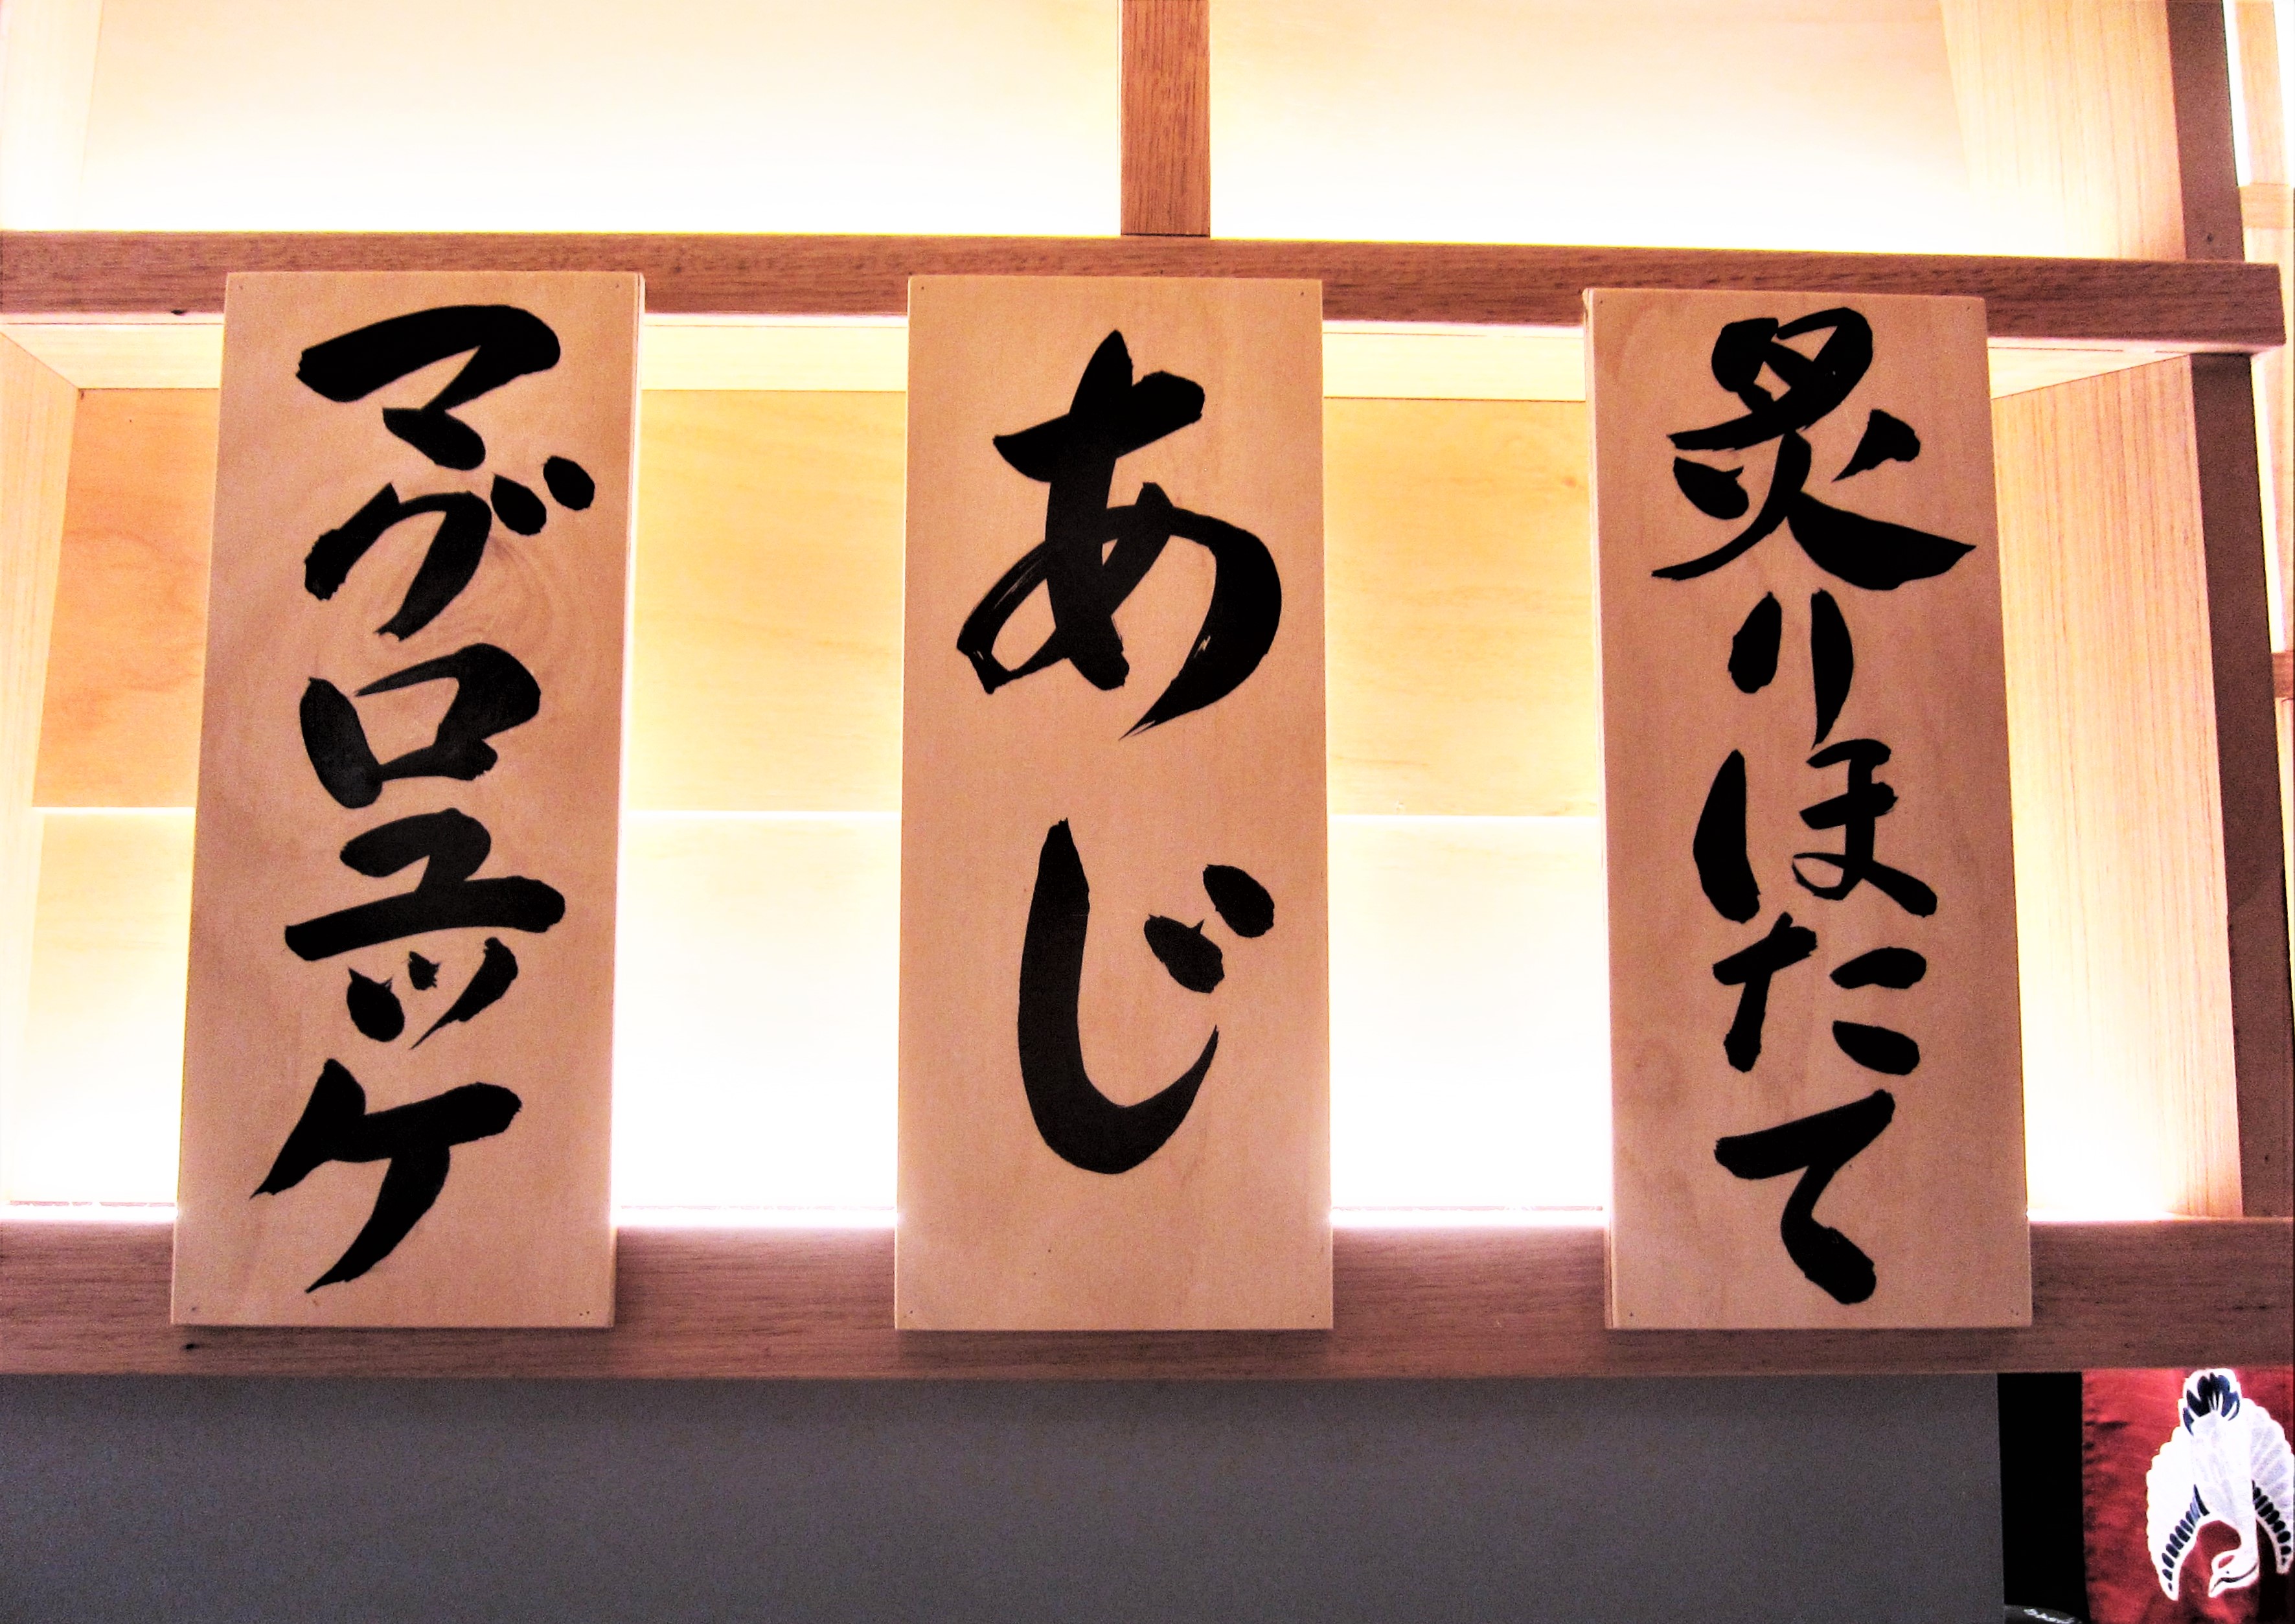 炙りほたて
あじ
マグロユッケ